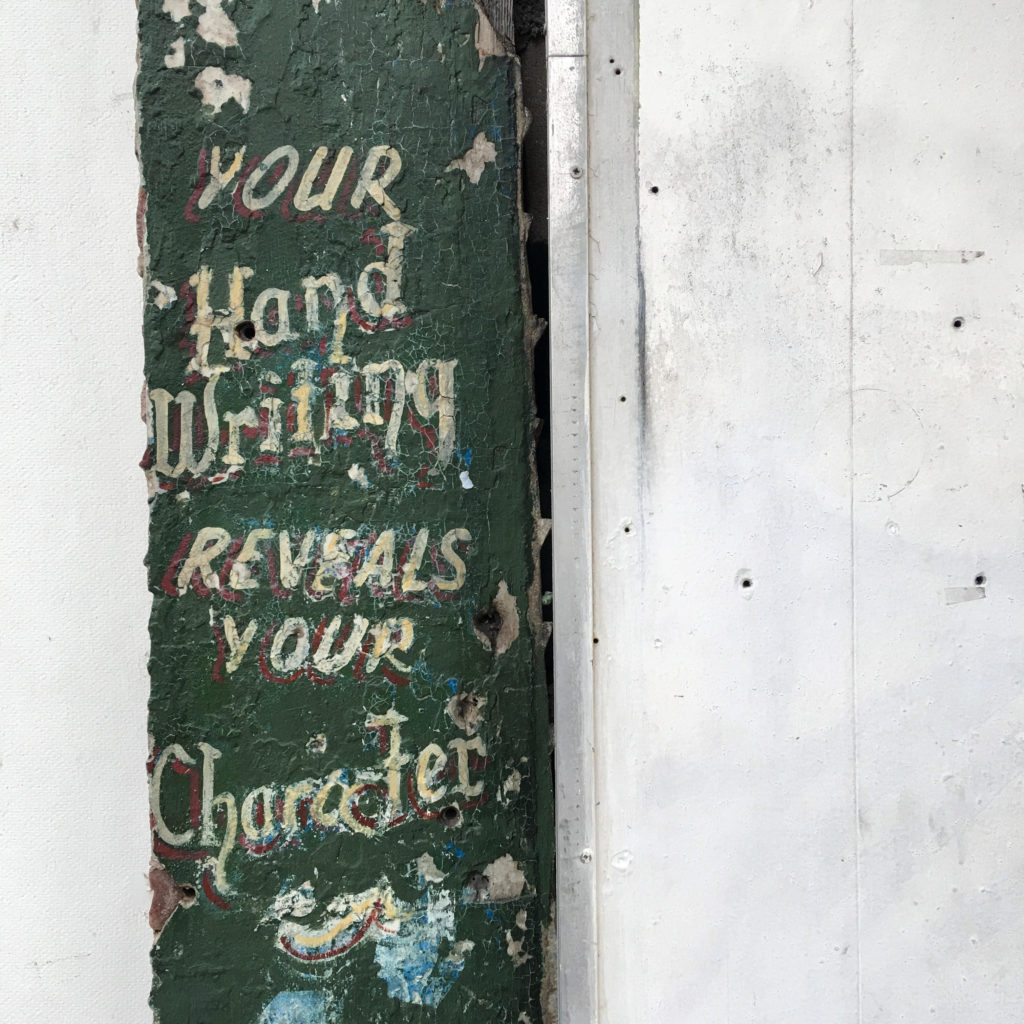 YOUR
Hand
Writing
REVEALS
YOUR
Character